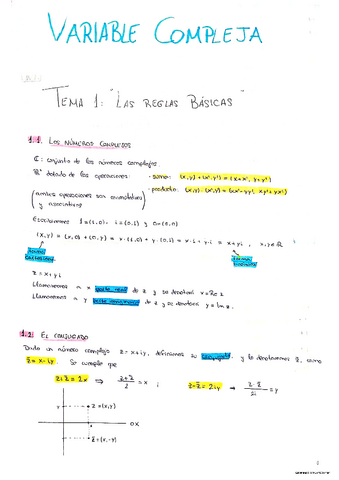 VARIABLE COMPLEJA
TEMA 1: "LAS REGLAS BÁSICAS"
1.1. LOS NÚMEROS COMPLEJOS
ℂ: conjunto de los números complejos.
ℝ² dotado de las operaciones: - suma: (x,y) + (x',y') = (x+x', y+y')
- producto: (x,y)·(x',y') = (xx'-yy', xy'+yx')
(ambas operaciones son conmutativas
y asociativas)
Escribiremos 1=(1,0), i=(0,1) y 0=(0,0)
(x,y) = (x,0) + (0,y) = x·(1,0) + y·(0,1) = x·1 + y·i = x+yi, x,y∈ℝ
forma forma
z = x+yi
Llamaremos a x parte real de z y se denotará x=Re z
Llamaremos a y parte imaginaria de z y se denotará y=Im z.
1.2. EL CONJUGADO
Dado un número complejo z=x+iy, definimos su conjugado, y lo denotaremos z̄, como
z̄=x-iy. Se cumple que
z+z̄=2x ⇒ (z+z̄)/2 = x ; z-z̄=2iy ⇒ (z-z̄)/2i = y
y
z=(x,y)
OX
z̄=(x,-y)